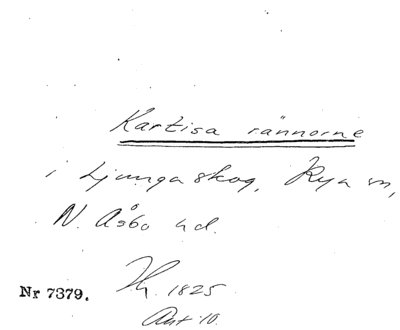 Kartisa rännorne
i Ljungaskog, Rya sn,
N. Åsbo hd.
Nr 7379. 1825
Ant 10.